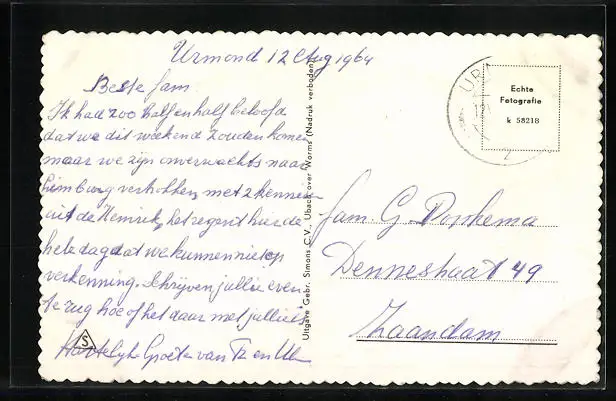 Urmond 12 Aug 1964
Beste fam
Ik had zoo half en half beloofd
dat we dit weekend zouden komen
maar we zijn onverwachts naar
Limburg vertrokken met 2 kennissen
uit de Heimrik, het regent hier de
hele dag dat we kunnen niet op
verkenning. Schrijven jullie even
terug hoe of het daar met jullie is
Hartelijke Groeten van T en
S
Uitgave Gebr. Simons C.V., Ubach over Worms (Nadruk verboden)
UR
2
Echte
Fotografie
k 58218
fam. G. Donkema
Dennestraat 49
Zaandam